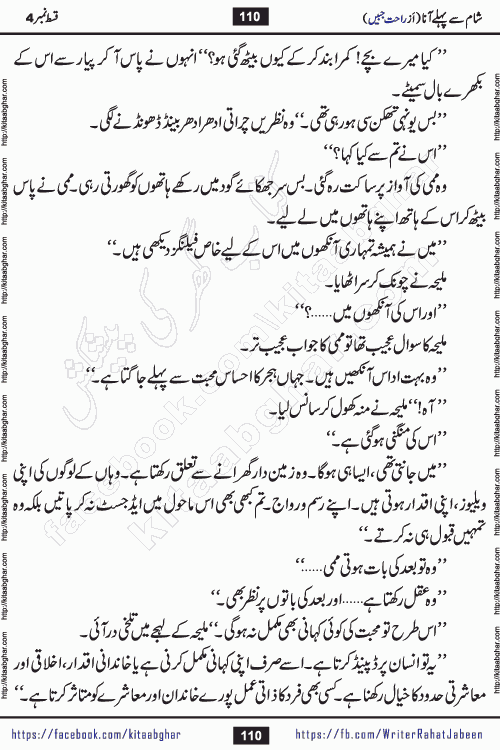 شام سے پہلے آنا (از راحت جبیں) 110 قسط نمبر 4
’’کیا میرے بچے! کمرا بند کر کے کیوں بیٹھ گئی ہو؟‘‘ انہوں نے پاس آ کر پیار سے اس کے
بکھرے بال سمیٹے۔
’’بس یونہی تھکن سی ہو رہی تھی۔‘‘ وہ نظریں چراتی ادھر ادھر بینڈ ڈھونڈنے لگی۔
’’اس نے تم سے کیا کہا؟‘‘
وہ ممی کی آواز پر ساکت رہ گئی۔ بس سر جھکائے گود میں رکھے ہاتھوں کو گھورتی رہی۔ ممی نے پاس
بیٹھ کر اس کے ہاتھ اپنے ہاتھوں میں لے لیے۔
’’میں نے ہمیشہ تمہاری آنکھوں میں اس کے لیے خاص فیلنگز دیکھی ہیں۔‘‘
ملیحہ نے چونک کر سر اٹھایا۔
’’اور اس کی آنکھوں میں……؟‘‘
ملیحہ کا سوال عجیب تھا تو ممی کا جواب عجیب تر۔
’’وہ بہت اداس آنکھیں ہیں۔ جہاں ہجر کا احساس محبت سے پہلے جاگتا ہے۔‘‘
’’آہ!‘‘ ملیحہ نے منہ کھول کر سانس لیا۔
’’اس کی منگنی ہو گئی ہے۔‘‘
’’میں جانتی تھی، ایسا ہی ہو گا۔ وہ زمین دار گھرانے سے تعلق رکھتا ہے۔ وہاں کے لوگوں کی اپنی
ویلیوز، اپنی اقدار ہوتی ہیں۔ اپنے رسم و رواج۔ تم کبھی بھی اس ماحول میں ایڈجسٹ نہ کر پاتیں بلکہ وہ
تمہیں قبول ہی نہ کرتے۔‘‘
’’وہ تو بعد کی بات ہوتی ممی……‘‘
’’وہ عقل رکھتا ہے…… اور بعد کی باتوں پر نظر بھی۔‘‘
’’اس طرح تو محبت کی کوئی کہانی بھی مکمل نہ ہو گی۔‘‘ ملیحہ کے لہجے میں تلخی در آئی۔
’’یہ تو انسان پر ڈیپینڈ کرتا ہے۔ اسے صرف اپنی کہانی مکمل کرنی ہے یا خاندانی اقدار، اخلاقی اور
معاشرتی حدود کا خیال رکھنا ہے۔ کسی بھی فرد کا ذاتی عمل پورے خاندان اور معاشرے کو متاثر کرتا ہے۔‘‘
https://facebook.com/kitaabghar 110 https://fb.com/WriterRahatJabeen
http://kitaabghar.com http://kitaabghar.com http://kitaabghar.com http://kitaabghar.com http://kitaabghar.com http://kitaabghar.com http://kitaabghar.com http://kitaabghar.com
http://kitaabghar.com http://kitaabghar.com http://kitaabghar.com http://kitaabghar.com http://kitaabghar.com http://kitaabghar.com http://kitaabghar.com http://kitaabghar.com
کتاب گھر کی پیشکش
facebook.com/kitaabghar
kitaabghar.com